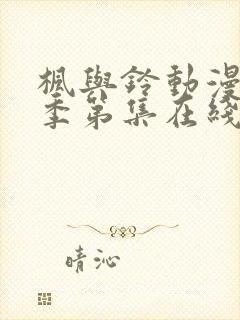 楓與鈴動漫
季第集在綫
晴沁